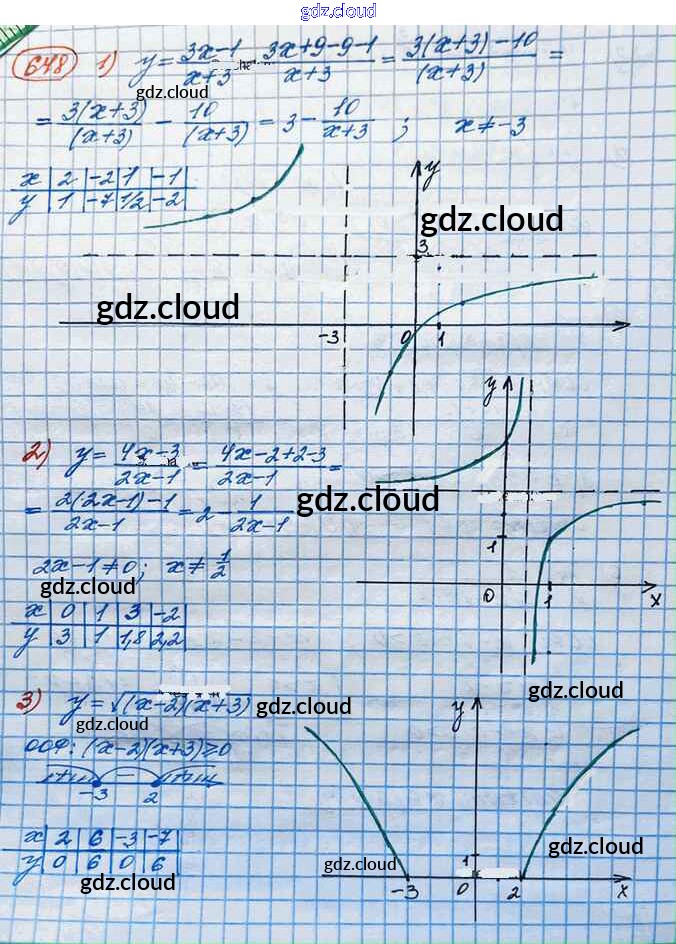 gdz.cloud
648 1) y = (3x-1)/(x+3) = (3x+9-9-1)/(x+3) = (3(x+3)-10)/(x+3) =
gdz.cloud
= 3(x+3)/(x+3) - 10/(x+3) = 3 - 10/(x+3) ; x ≠ -3
x | 2 | -2 | 1 | -1
y | 1 | -7 | 1/2 | -2
y
gdz.cloud
3
gdz.cloud
-3 0 1
y
2) y = (4x-3)/(2x-1) = (4x-2+2-3)/(2x-1) =
= (2(2x-1)-1)/(2x-1) = 2 - 1/(2x-1)
gdz.cloud
1
2x-1≠0; x ≠ 1/2
gdz.cloud
0 1 x
x | 0 | 1 | 3 | -2
y | 3 | 1 | 1,8 | 2,2
gdz.cloud
3) y = √(x-2)(x+3)
gdz.cloud
gdz.cloud
y
ООФ: (x-2)(x+3)≥0
+ - +
-3 2
x | 2 | 6 | -3 | -7
y | 0 | 6 | 0 | 6
gdz.cloud
gdz.cloud
gdz.cloud
1
-3 0 2 x